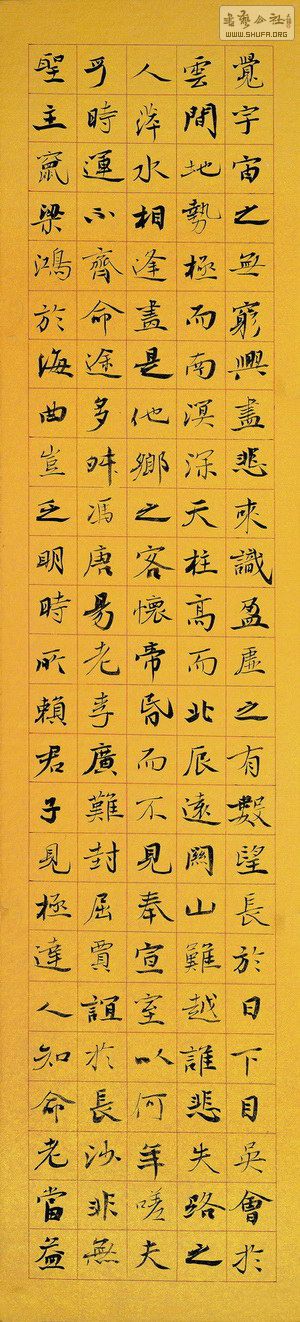 書藝公社
WWW.SHUFA.ORG
覺宇宙之無窮興盡悲來識盈虛之有數望長於日下目吳會於
雲間地勢極而南溟深天柱高而北辰遠關山難越誰悲失路之
人萍水相逢盡是他鄉之客懷帝昏而不見奉宣室以何年嗟夫
乎時運不齊命途多舛馮唐易老李廣難封屈賈誼於長沙非無
聖主竄梁鴻於海曲豈乏明時所賴君子見極達人知命老當益